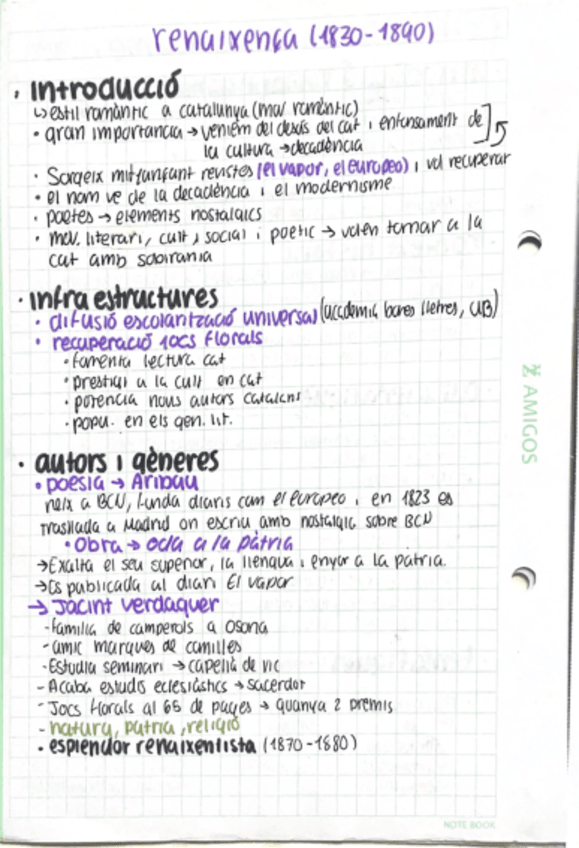 renaixença (1830-1890)
· introducció
↳ estil romàntic a catalunya (mov romàntic)
· gran importància → veníem del desús del cat i enfonsament de
la cultura → decadència
· Sorgeix mitjançant revistes (el vapor, el europeo) i vol recuperar
· el nom ve de la decadència i el modernisme
· poetes → elements nostàlgics
· mov. literari, cult, social i poetic → volen tornar a la
cat amb sobirania
· infraestructures
· difusió escolarització universal (acadèmia bones lletres, UB)
· recuperació jocs florals
· fomenta lectura cat
· prestigi a la cult en cat
· potencia nous autors catalans
· popu. en els gèn. lit.
· autors i gèneres
· poesia → Aribau
neix a BCN, funda diaris com el europeo i en 1823 es
trasllada a Madrid on escriu amb nostàlgia sobre BCN
· Obra → oda a la pàtria
→ Exalta el seu superior, la llengua i enyor a la pàtria.
→ Es publicada al diari El vapor
→ Jacint verdaguer
- família de camperols a Osona
- amic marques de comilles
- Estudia seminari → capellà de vic
- Acaba estudis eclesiàstics → sacerdot
- Jocs florals al 65 de pagès → guanya 2 premis
- natura, patria, religió
· esplendor renaixentista (1870-1880)
AMIGOS
NOTE BOOK